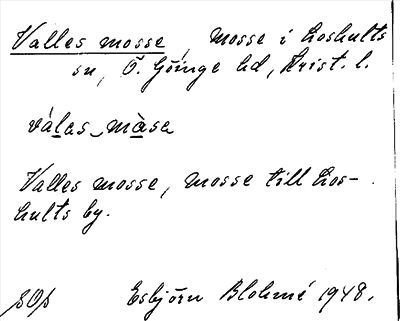 Valles mosse, Mosse i Loshults
sn, Ö. Göinge hd, Krist. l.
válas màsa
Valles mosse, mosse till Los-
hults by.
SOp Esbjörn Blohmé 1948.